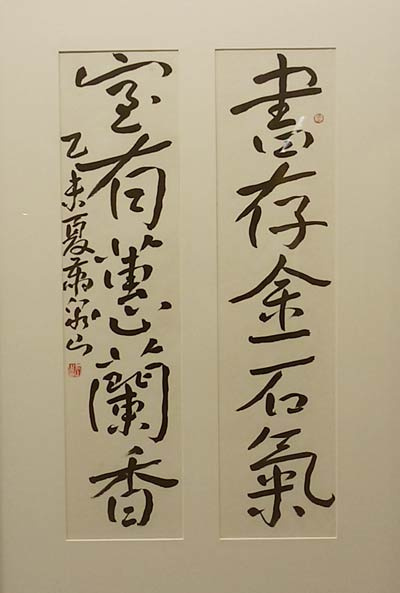 書存金石氣
室有蕙蘭香
乙未夏
山